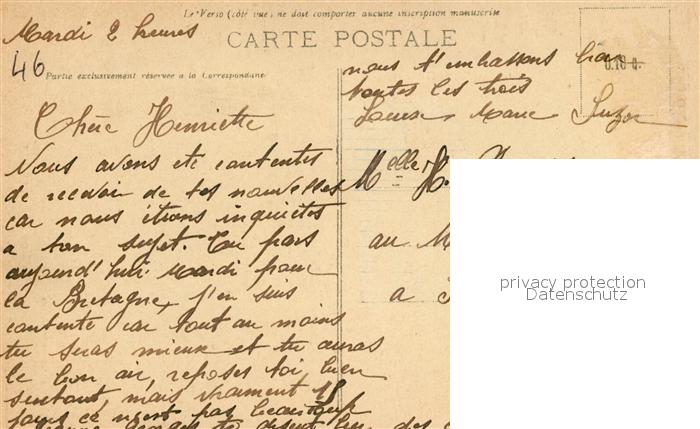 Le Verso (côté vue) ne doit comporter aucune inscription manuscrite
Mardi 2 heures
CARTE POSTALE
46
Partie exclusivement réservée à la Correspondance
nous t'embrassons bien
toutes les trois
Louise Marie Suzon
Chère Henriette
Nous avons ete contentes
de recevoir de tes nouvelles
car nous étions inquietes
a ton sujet. Tu pars
aujourd'hui Mardi pour
la Bretagne, j'en suis
contente car tout au moins
tu seras mieux et tu auras
le bon air, reposes toi bien
surtout, mais vraiment 15
jours ce n'est pas beaucoup
Melle H.
au M
a
privacy protection
Datenschutz